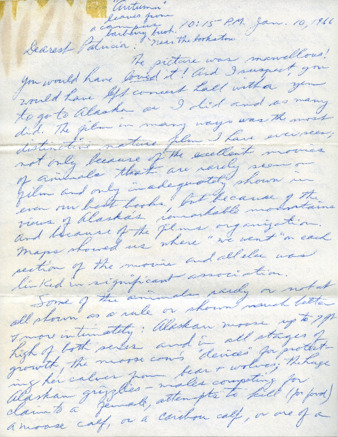 "Autumn"
leaves from
a common
barberry bush.
near the bookstore
10:15 P.M. Jan. 10, 1966
Dearest Patricia:
The picture was marvellous!
You would have loved it! And I suspect you
would have left concert hall with a yen
to go to Alaska as I did and as many
did. The film in many ways was the most
distinctive nature film I have ever seen,
not only because of the excellent movies
of animals that are rarely seen on
film and only inadequately shown in
even our best books, but because of the
views of Alaska's remarkable mountains
and because of the film's organization.
Maps showed us where "we went" on each
section of the movie and all else was
linked in significant association.
Some of the animals rarely or not at
all shown as a rule or shown much better
& more intimately: Alaskan moose up to 7 ft
high of both sexes and in all stages of
growth, the moose cow's "devices" for protect-
ing her calves from bear & wolves; the huge
Alaskan grizzlies – males competing for
claim to a female, attempts to kill (for food)
a moose calf, or a caribou calf, or one of a